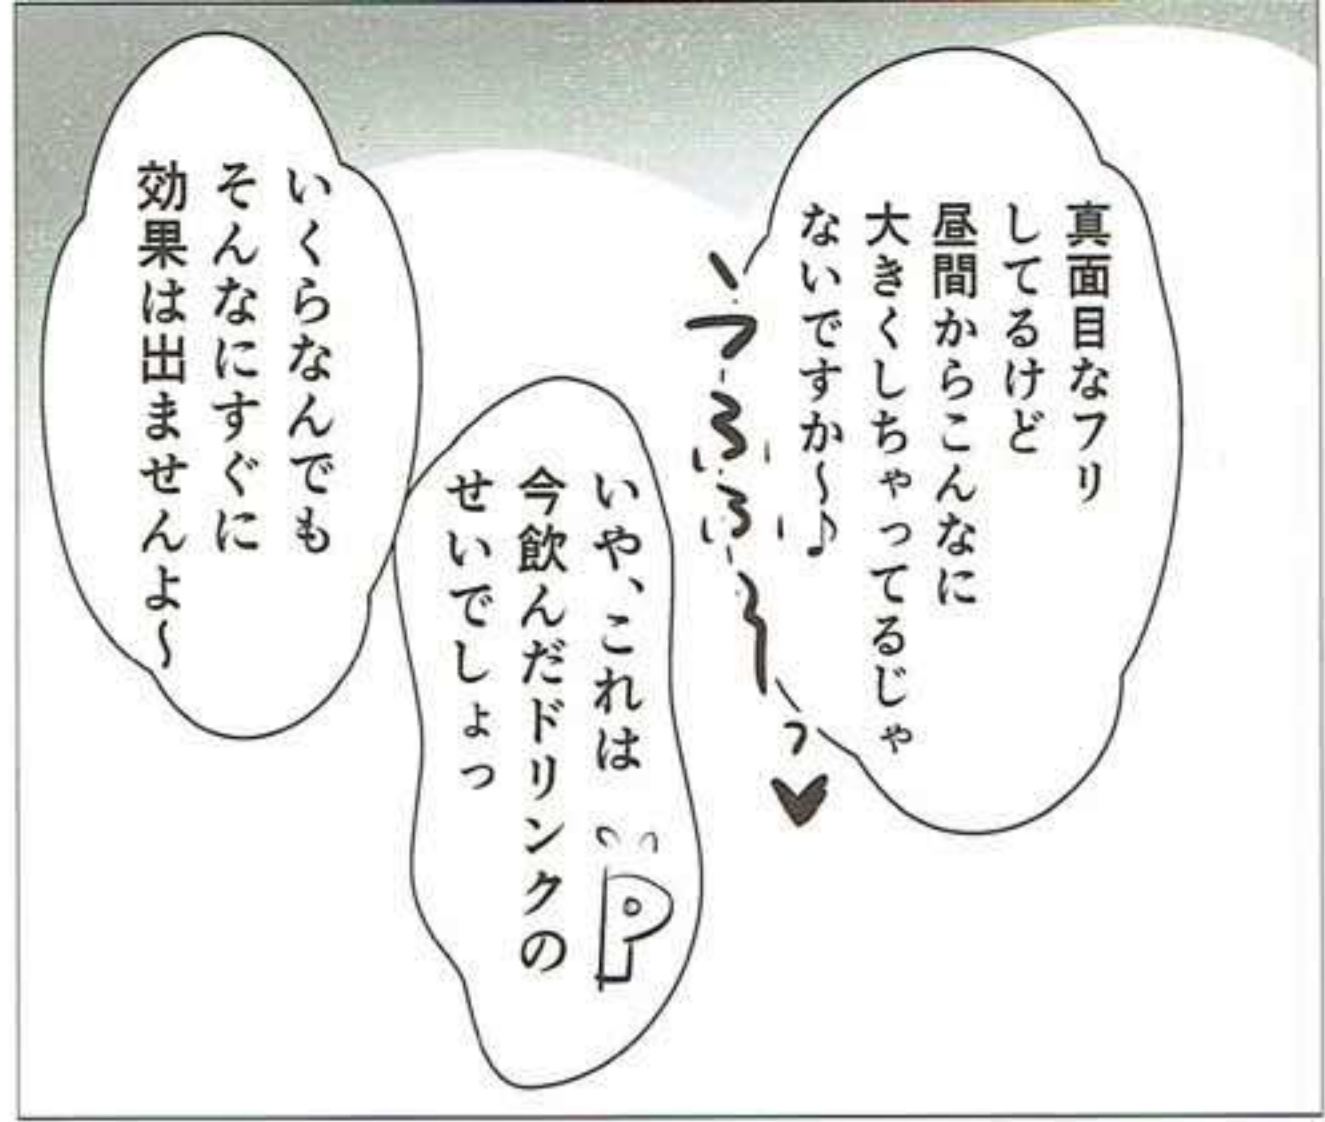 真面目なフリ
してるけど
昼間からこんなに
大きくしちゃってるじゃ
ないですか～♪
いや、これは
今飲んだドリンクの
せいでしょっ
P
いくらなんでも
そんなにすぐに
効果は出ませんよ～